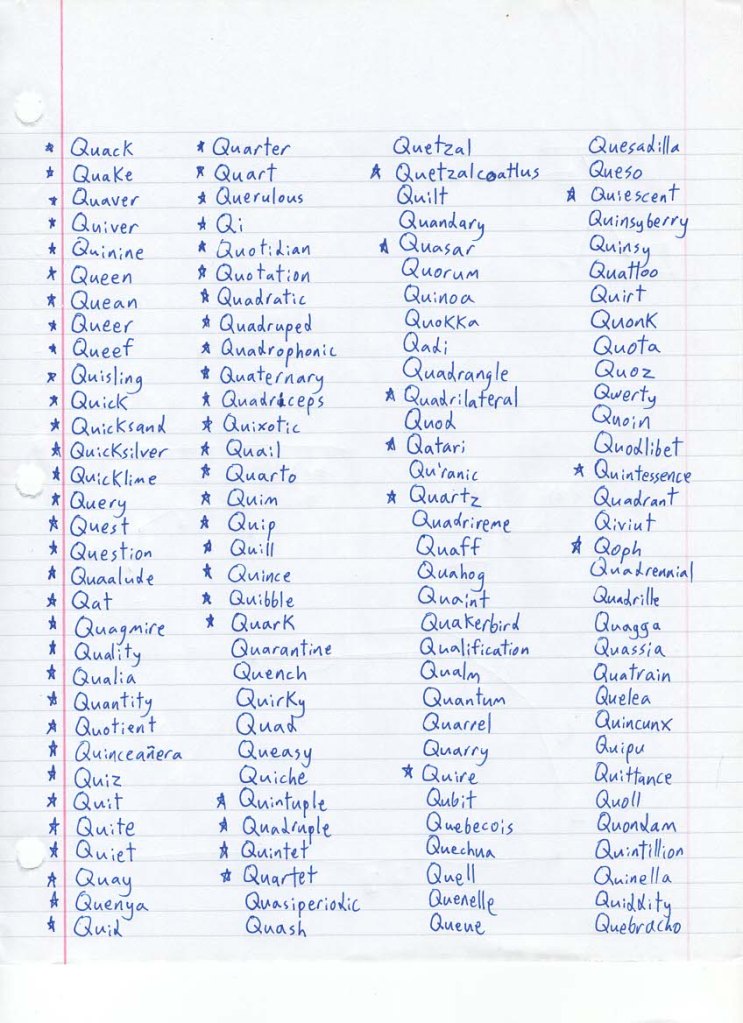 ★ Quack
★ Quake
★ Quaver
★ Quiver
★ Quinine
★ Queen
★ Quean
★ Queer
★ Queef
★ Quisling
★ Quick
★ Quicksand
★ Quicksilver
★ Quicklime
★ Query
★ Quest
★ Question
★ Quaalude
★ Qat
★ Quagmire
★ Quality
★ Qualia
★ Quantity
★ Quotient
★ Quinceañera
★ Quiz
★ Quit
★ Quite
★ Quiet
★ Quay
★ Quenya
★ Quid
★ Quarter
★ Quart
★ Querulous
★ Qi
★ Quotidian
★ Quotation
★ Quadratic
★ Quadruped
★ Quadrophonic
★ Quaternary
★ Quadriceps
★ Quixotic
★ Quail
★ Quarto
★ Quim
★ Quip
★ Quill
★ Quince
★ Quibble
★ Quark
Quarantine
Quench
Quirky
Quad
Queasy
Quiche
★ Quintuple
★ Quadruple
★ Quintet
★ Quartet
Quasiperiodic
Quash
Quetzal
★ Quetzalcoatlus
Quilt
Quandary
★ Quasar
Quorum
Quinoa
Quokka
Qadi
Quadrangle
★ Quadrilateral
Quod
★ Qatari
Qu'ranic
★ Quartz
Quadrireme
Quaff
Quahog
Quaint
Quakerbird
Qualification
Qualm
Quantum
Quarrel
Quarry
★ Quire
Qubit
Quebecois
Quechua
Quell
Quenelle
Queue
Quesadilla
Queso
★ Quiescent
Quinsyberry
Quinsy
Quattoo
Quirt
Quonk
Quota
Quoz
Qwerty
Quoin
Quodlibet
★ Quintessence
Quadrant
Qiviut
★ Qoph
Quadrennial
Quadrille
Quagga
Quassia
Quatrain
Quelea
Quincunx
Quipu
Quittance
Quoll
Quondam
Quintillion
Quinella
Quiddity
Quebracho